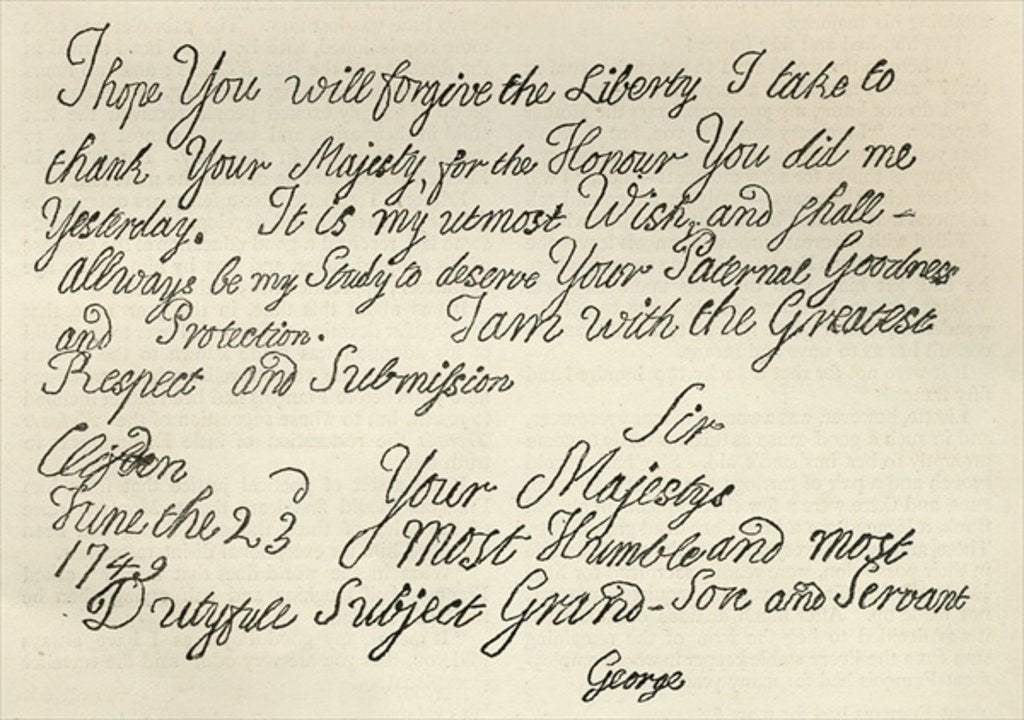 I hope You will forgive the Liberty I take to
thank Your Majesty, for the Honour You did me
Yesterday. It is my utmost Wish, and shall -
allways be my Study to deserve Your Paternal Goodness
and Protection. I am with the Greatest
Respect and Submission
Sir
Cliffden
June the 23d
1749
Your Majestys
Most Humble and most
Dutyfull Subject Grand-Son and Servant
George